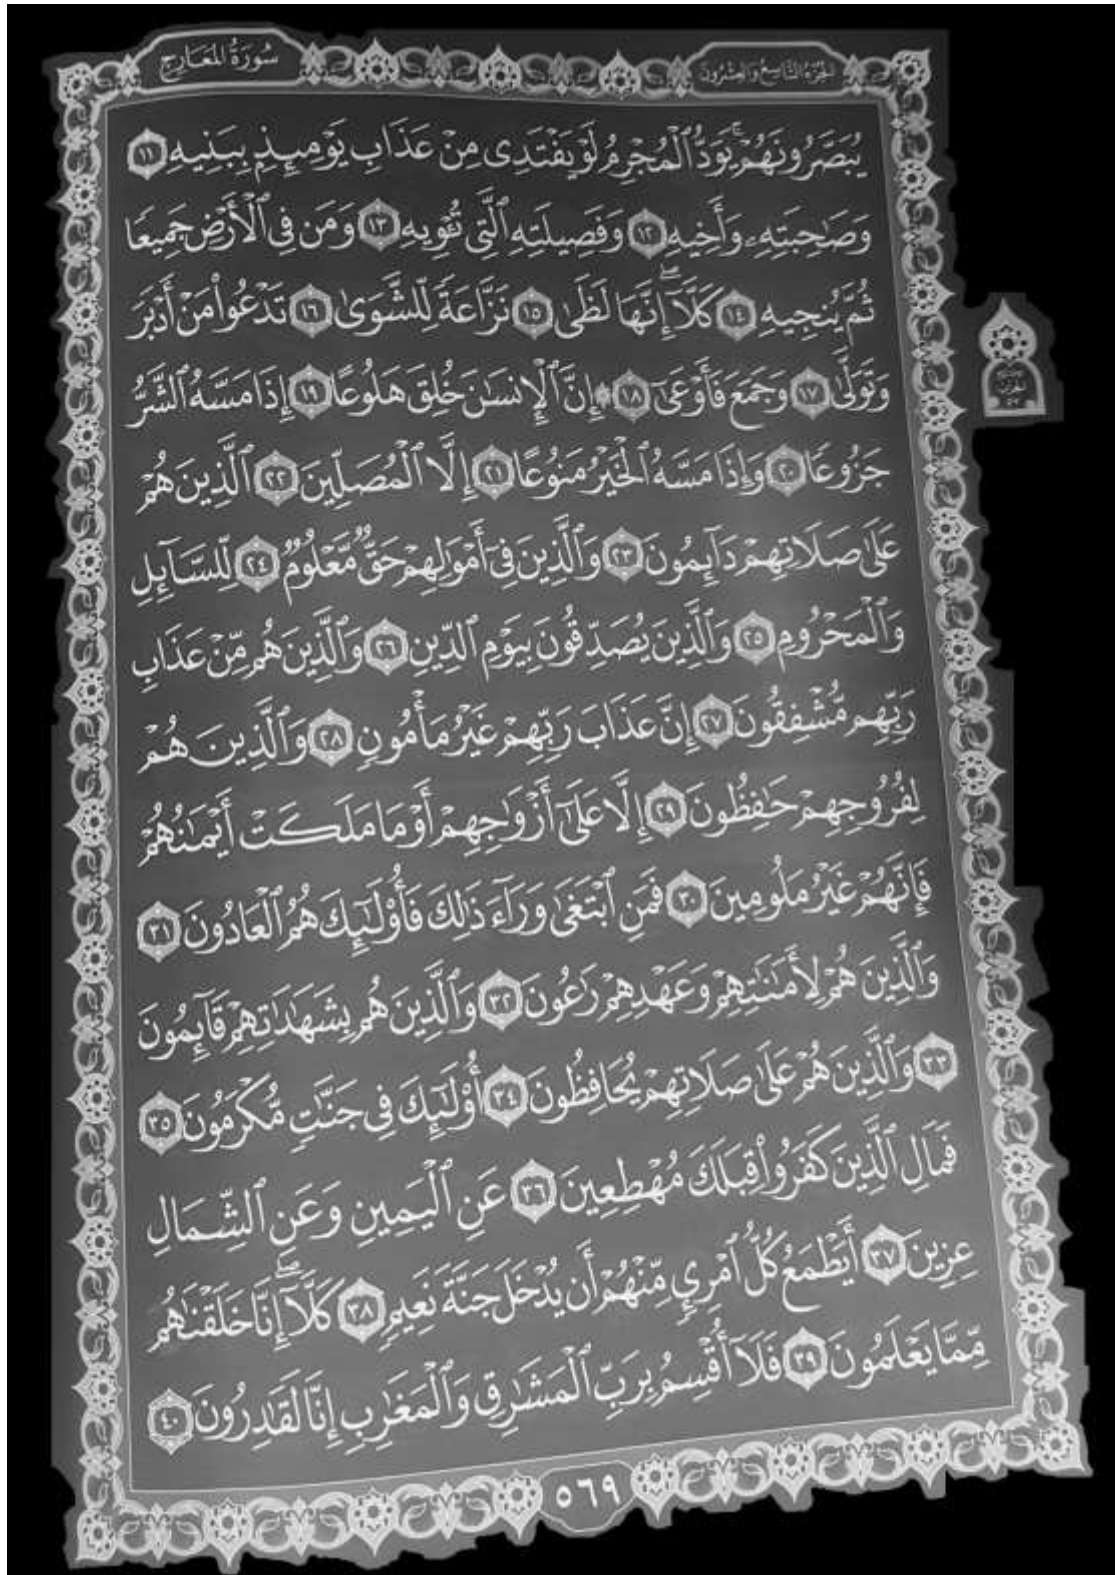 سُورَةُ المَعَارِجِ
الجُزْءُ التَّاسِعُ وَالعِشْرُونَ
يُبَصَّرُونَهُمْۚ يَوَدُّ ٱلْمُجْرِمُ لَوْ يَفْتَدِى مِنْ عَذَابِ يَوْمِئِذٍۭ بِبَنِيهِ ١١
وَصَٰحِبَتِهِۦ وَأَخِيهِ ١٢ وَفَصِيلَتِهِ ٱلَّتِى تُـْٔوِيهِ ١٣ وَمَن فِى ٱلْأَرْضِ جَمِيعًا
ثُمَّ يُنجِيهِ ١٤ كَلَّآۖ إِنَّهَا لَظَىٰ ١٥ نَزَّاعَةً لِّلشَّوَىٰ ١٦ تَدْعُوا۟ مَنْ أَدْبَرَ
وَتَوَلَّىٰ ١٧ وَجَمَعَ فَأَوْعَىٰٓ ١٨ ۞ إِنَّ ٱلْإِنسَٰنَ خُلِقَ هَلُوعًا ١٩ إِذَا مَسَّهُ ٱلشَّرُّ
جَزُوعًا ٢٠ وَإِذَا مَسَّهُ ٱلْخَيْرُ مَنُوعًا ٢١ إِلَّا ٱلْمُصَلِّينَ ٢٢ ٱلَّذِينَ هُمْ
عَلَىٰ صَلَاتِهِمْ دَآئِمُونَ ٢٣ وَٱلَّذِينَ فِىٓ أَمْوَٰلِهِمْ حَقٌّ مَّعْلُومٌ ٢٤ لِّلسَّآئِلِ
وَٱلْمَحْرُومِ ٢٥ وَٱلَّذِينَ يُصَدِّقُونَ بِيَوْمِ ٱلدِّينِ ٢٦ وَٱلَّذِينَ هُم مِّنْ عَذَابِ
رَبِّهِم مُّشْفِقُونَ ٢٧ إِنَّ عَذَابَ رَبِّهِمْ غَيْرُ مَأْمُونٍ ٢٨ وَٱلَّذِينَ هُمْ
لِفُرُوجِهِمْ حَٰفِظُونَ ٢٩ إِلَّا عَلَىٰٓ أَزْوَٰجِهِمْ أَوْ مَا مَلَكَتْ أَيْمَٰنُهُمْ
فَإِنَّهُمْ غَيْرُ مَلُومِينَ ٣٠ فَمَنِ ٱبْتَغَىٰ وَرَآءَ ذَٰلِكَ فَأُو۟لَٰٓئِكَ هُمُ ٱلْعَادُونَ ٣١
وَٱلَّذِينَ هُمْ لِأَمَٰنَٰتِهِمْ وَعَهْدِهِمْ رَٰعُونَ ٣٢ وَٱلَّذِينَ هُم بِشَهَٰدَٰتِهِمْ قَآئِمُونَ
٣٣ وَٱلَّذِينَ هُمْ عَلَىٰ صَلَاتِهِمْ يُحَافِظُونَ ٣٤ أُو۟لَٰٓئِكَ فِى جَنَّٰتٍ مُّكْرَمُونَ ٣٥
فَمَالِ ٱلَّذِينَ كَفَرُوا۟ قِبَلَكَ مُهْطِعِينَ ٣٦ عَنِ ٱلْيَمِينِ وَعَنِ ٱلشِّمَالِ
عِزِينَ ٣٧ أَيَطْمَعُ كُلُّ ٱمْرِئٍ مِّنْهُمْ أَن يُدْخَلَ جَنَّةَ نَعِيمٍ ٣٨ كَلَّآۖ إِنَّا خَلَقْنَٰهُم
مِّمَّا يَعْلَمُونَ ٣٩ فَلَآ أُقْسِمُ بِرَبِّ ٱلْمَشَٰرِقِ وَٱلْمَغَٰرِبِ إِنَّا لَقَٰدِرُونَ ٤٠
٥٦٩